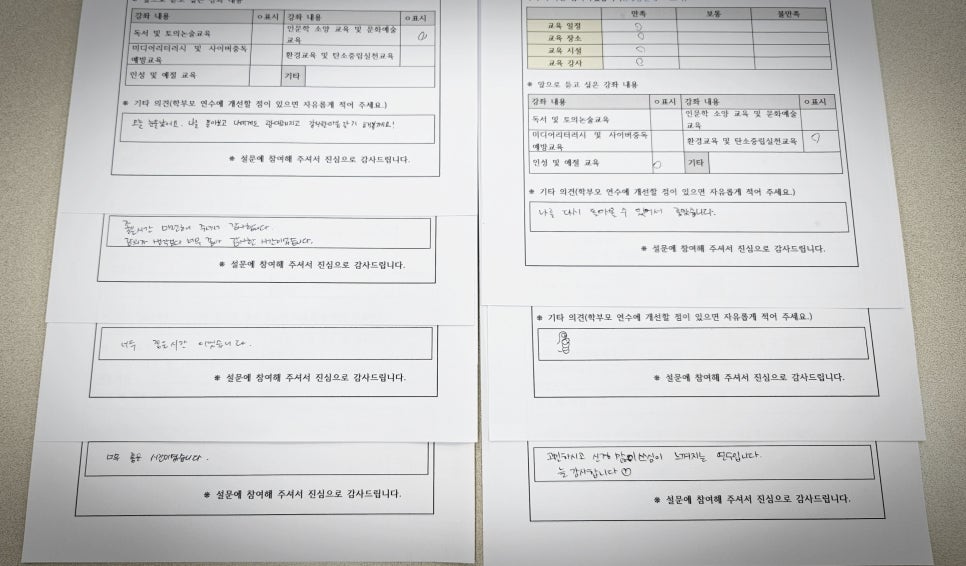 강좌 내용 ○표시 강좌 내용 ○표시
독서 및 토의논술교육 인문학 소양 교육 및 문화예술
교육
미디어리터러시 및 사이버중독
예방교육 환경교육 및 탄소중립실천교육
인성 및 예절 교육 기타
※ 기타 의견(학부모 연수에 개선할 점이 있으면 자유롭게 적어 주세요.)
나를 돌아보고
※ 설문에 참여해 주셔서 진심으로 감사드립니다.
좋은시간 마련해 주셔서 감사합니다.
너무
※ 설문에 참여해 주셔서 진심으로 감사드립니다.
너무 좋은시간 이었습니다.
※ 설문에 참여해 주셔서 진심으로 감사드립니다.
너무 좋은 시간이었습니다.
※ 설문에 참여해 주셔서 진심으로 감사드립니다.
만족 보통 불만족
교육 일정
교육 장소
교육 시설
교육 강사
※ 앞으로 듣고 싶은 강좌 내용
강좌 내용 ○표시 강좌 내용 ○표시
독서 및 토의논술교육 인문학 소양 교육 및 문화예술
교육
미디어리터러시 및 사이버중독
예방교육 환경교육 및 탄소중립실천교육
인성 및 예절 교육 기타
※ 기타 의견(학부모 연수에 개선할 점이 있으면 자유롭게 적어 주세요.)
나를 다시 돌아볼 수 있어서 좋았습니다.
※ 설문에 참여해 주셔서 진심으로 감사드립니다.
※ 기타 의견(학부모 연수에 개선할 점이 있으면 자유롭게 적어 주세요.)
※ 설문에 참여해 주셔서 진심으로 감사드립니다.
고민하시고 신경 많이 쓰심이 느껴지는 연수입니다.
늘 감사합니다
※ 설문에 참여해 주셔서 진심으로 감사드립니다.